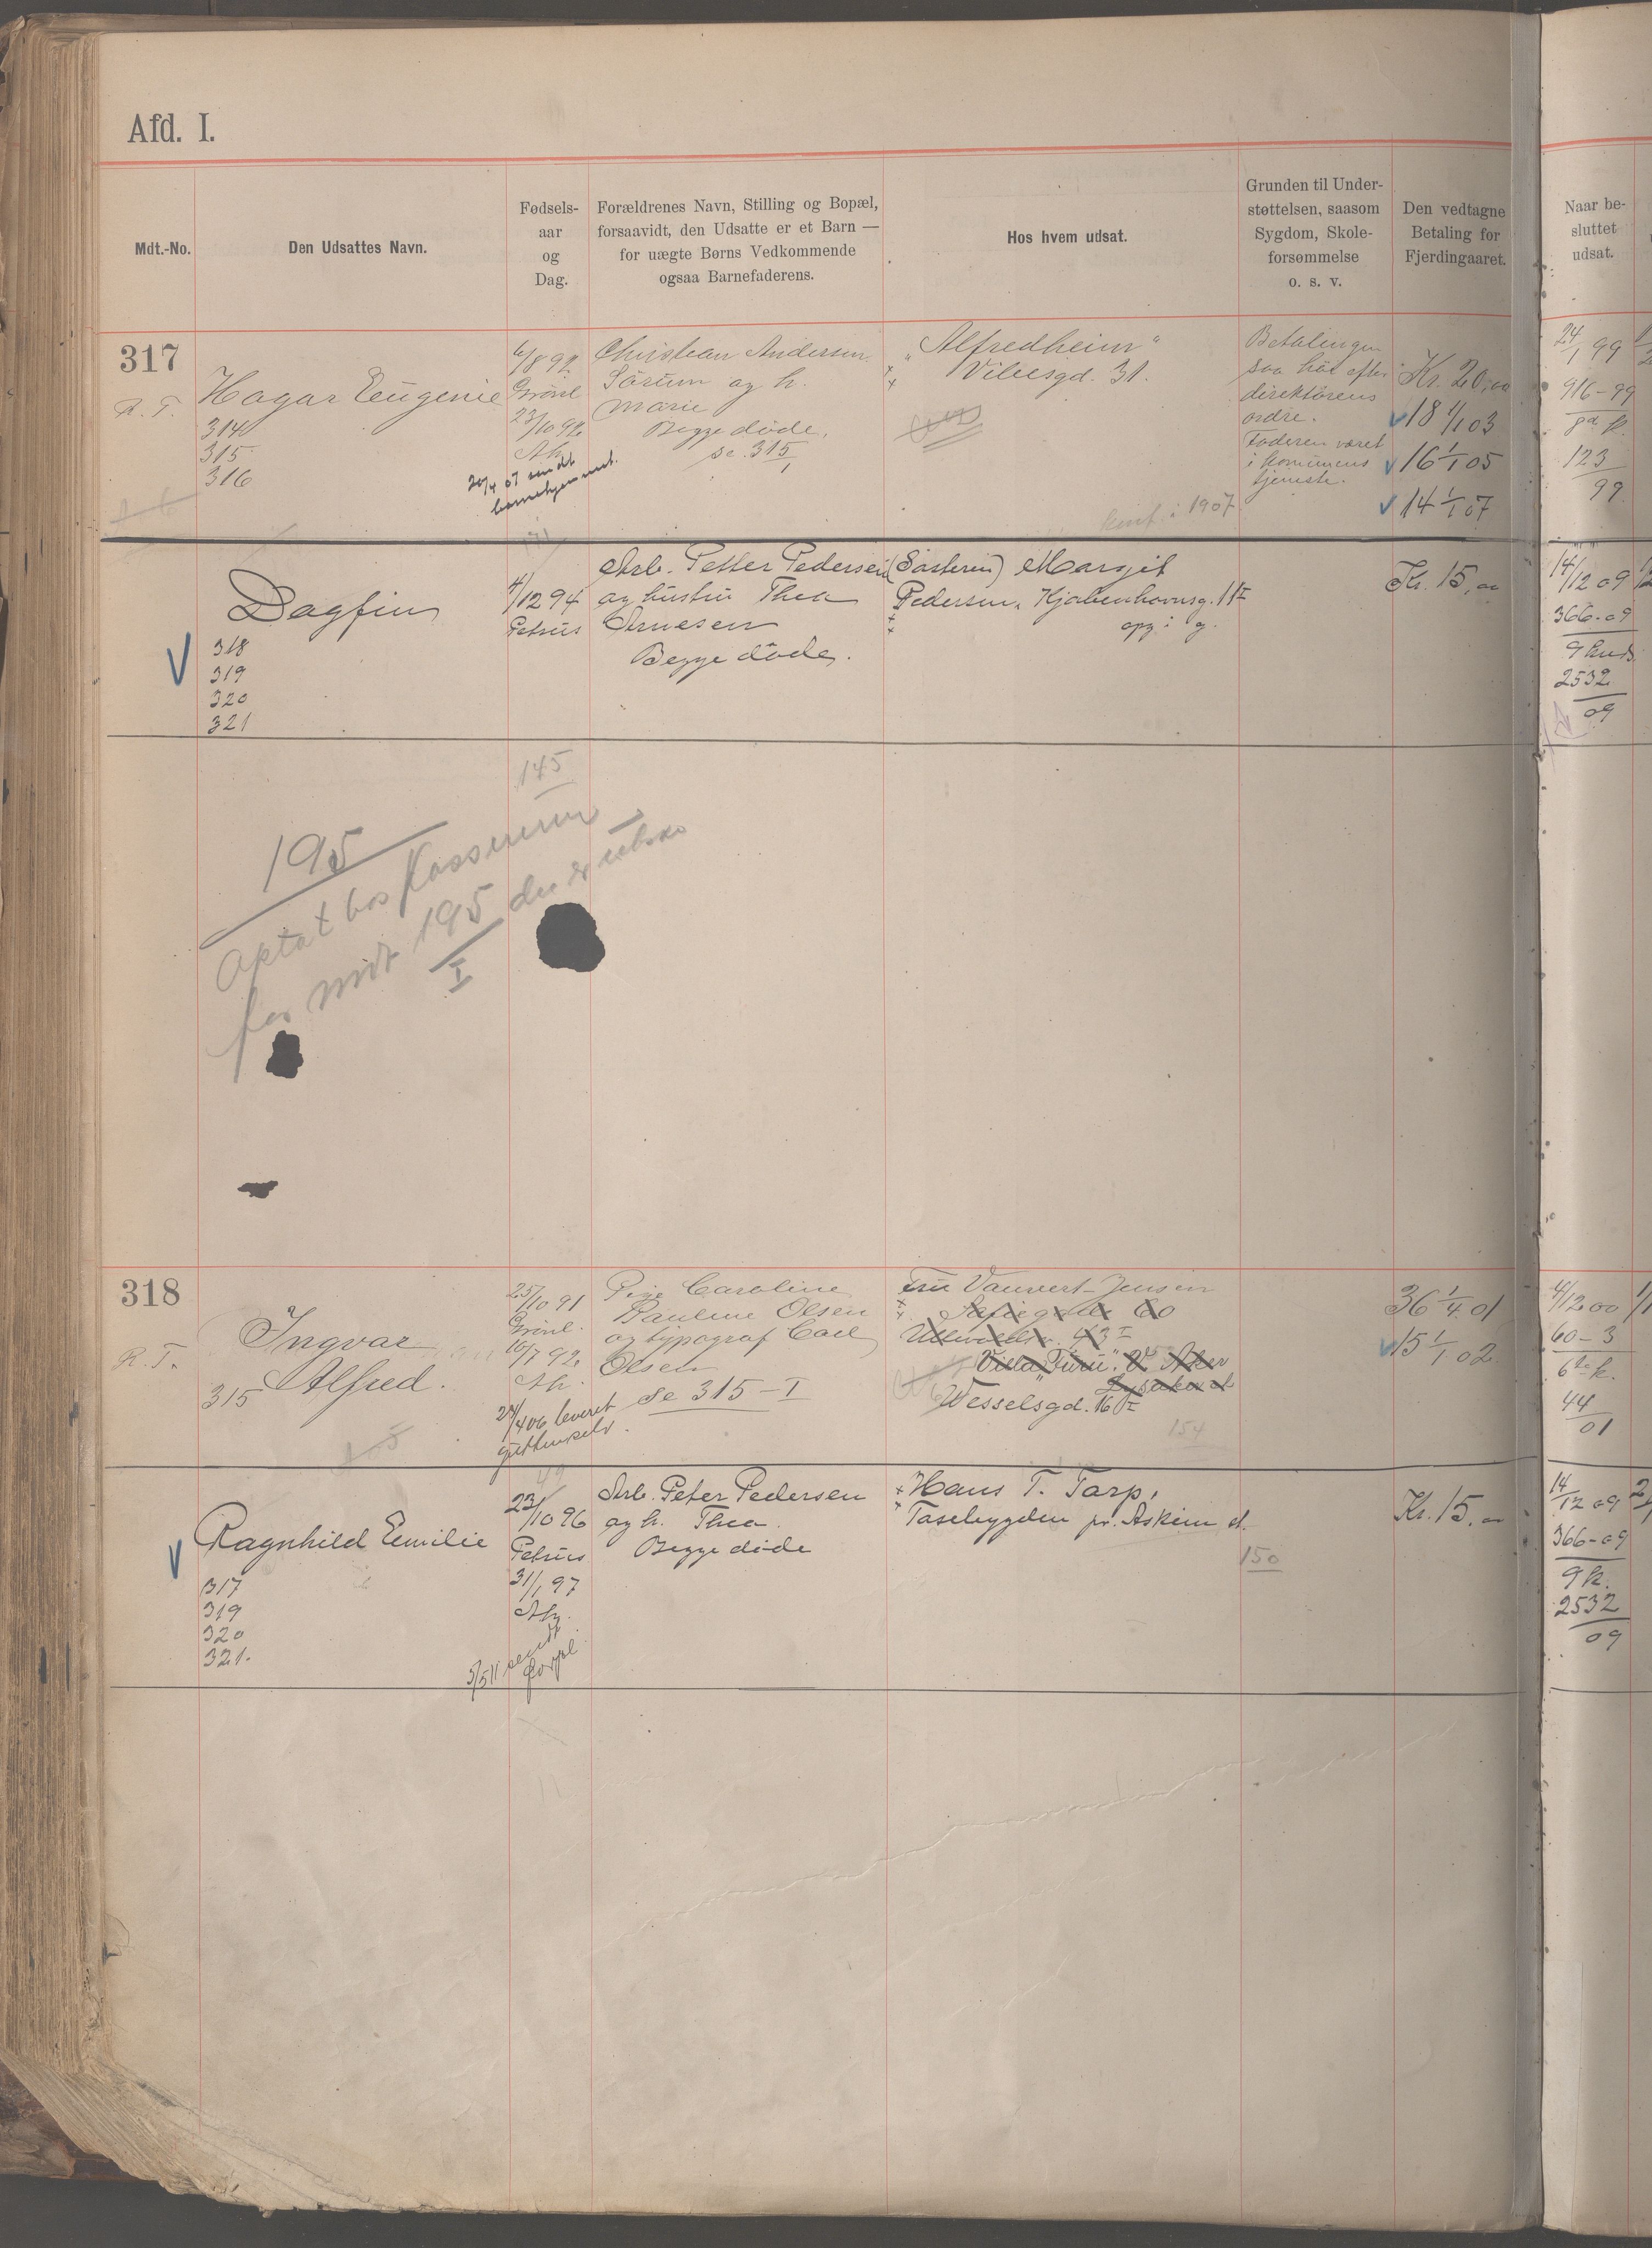 Afd. I.
Mdt.-No.
Den Udsattes Navn.
Fødsels-
aar
og
Dag.
Forældrenes Navn, Stilling og Bopæl,
forsaavidt, den Udsatte er et Barn —
for uægte Børns Vedkommende
ogsaa Barnefaderens.
Hos hvem udsat.
Grunden til Under-
støttelsen, saasom
Sygdom, Skole-
forsømmelse
o. s. v.
Den vedtagne
Betaling for
Fjerdingaaret.
Naar be-
sluttet
udsat.
317
R. T.
Hagar Eugenie
314
315
316
6/8 92
Grönl
23/10 92
Ak.
20/4 07 sendt
barnehjemmet.
Christian Andersen
Sörum og h.
Marie
Begge döde.
se 315/1
"Alfredheim"
Vibesgd. 31.
konf. i 1907
Betalingen
saa höi efter
direktörens
ordre.
Faderen været
i kommunens
tjeneste.
Kr. 20,00
18 1/1 03
16 1/1 05
14 1/1 07
24/1 99
916-99
123/99
Dagfin
318
319
320
321
4/12 94
Petrus
Arb. Petter Pedersen
og hustru Thea
Arnesen
Begge döde.
(Søsteren) Margit
Pedersen, Kjøbenhavnsg. 11 I
opg. i g.
Kr. 15,00
14/12 09
366-09
2532/09
145
195
Optat hos
for mdt 195
I
318
R. T.
Ingvar
Alfred.
315
25/10 91
Grönl.
10/7 92
Ak.
24/4 06 leveret
Pige Caroline
Pauline Olsen
og typograf Carl
Olsen
Se 315 - I
Fru Vauvert-Jensen
Sofiegden 60
43 I
Villa "Furu". V. Aker
Lysaker st
Wesselsgd. 16 I
154
36 1/4 01
15 1/1 02
4/12 00
60-3
6te k.
44/01
Ragnhild Emilie
317
319
320
321.
23/10 96
Petrus
31/1 97
Ak.
5/5 11 sendt
Arb. Peter Pedersen
og h. Thea.
Begge döde
Hans T. Tarp,
Tasebygden pr. Askim st.
150
Kr. 15,00
14/12 09
366-09
9 k.
2532/09